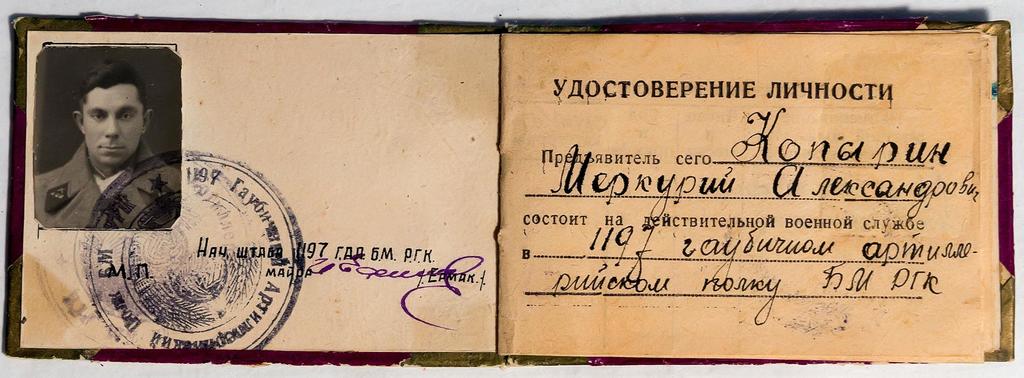 1197 Гаубичный Артиллерийский Полк
М.П.
Нач. штаба 1197 ГАП БМ. РГК.
майор /Ермак./
УДОСТОВЕРЕНИЕ ЛИЧНОСТИ
Предъявитель сего Копырин
Меркурий Александрович
состоит на действительной военной службе
в 1197 гаубичном артилле-
рийском полку БМ РГК